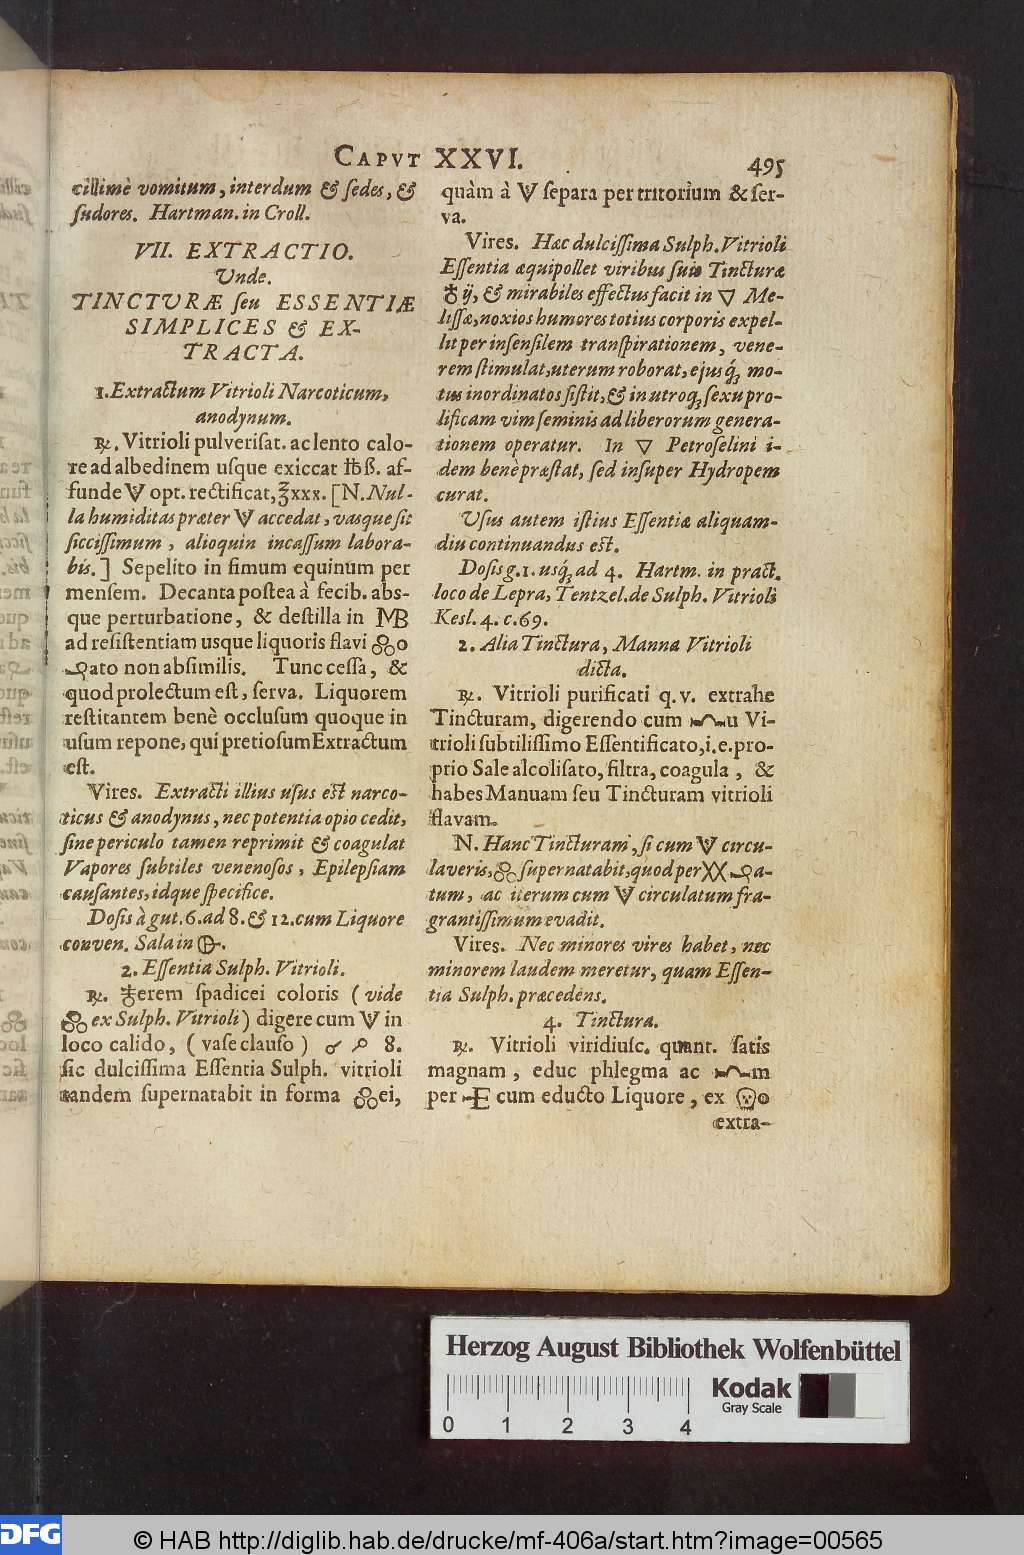 CAPVT XXVI. 495
cillimè vomitum, interdum & ſedes, &
ſudores. Hartman. in Croll.
VII. EXTRACTIO.
Unde.
TINCTVRÆ ſeu ESSENTIÆ
SIMPLICES & EX-
TRACTA.
1. Extractum Vitrioli Narcoticum,
anodynum.
℞. Vitrioli pulveriſat. ac lento calo-
re ad albedinem uſque exiccat ℔ß. af-
funde 🜈 opt. rectificat, ℥xxx. [N. Nul-
la humiditas præter 🜈 accedat, vasque ſit
ſicciſſimum, alioquin incaſſum labora-
bis.] Sepelito in fimum equinum per
menſem. Decanta poſtea à fecib. abs-
que perturbatione, & deſtilla in MB
ad reſiſtentiam usque liquoris flavi o
ato non abſimilis. Tunc ceſſa, &
quod prolectum eſt, ſerva. Liquorem
reſtitantem benè occluſum quoque in
uſum repone, qui pretioſum Extractum
eſt.
Vires. Extracti illius uſus eſt narco-
ticus & anodynus, nec potentia opio cedit,
ſine periculo tamen reprimit & coagulat
Vapores ſubtiles venenoſos, Epilepſiam
cauſantes, idque ſpecifice.
Doſis à gut. 6. ad 8. & 12. cum Liquore
conven. Sala in .
2. Eſſentia Sulph. Vitrioli.
℞. 🜍erem ſpadicei coloris (vide
ex Sulph. Vitrioli) digere cum 🜈 in
loco calido, (vaſe clauſo) 8.
ſic dulciſſima Eſſentia Sulph. vitrioli
tandem ſupernatabit in forma ei,
quàm à 🜈 ſepara per tritorium & ſer-
va.
Vires. Hæc dulciſſima Sulph. Vitrioli
Eſſentia æquipollet viribus ſuis Tincturæ
♁ ij, & mirabiles effectus facit in 🜄 Me-
liſſæ, noxios humores totius corporis expel-
lit per inſenſilem tranſpirationem, vene-
rem ſtimulat, uterum roborat, ejusq́ꝫ mo-
tus inordinatos ſiſtit, & in utroqꝫ ſexu pro-
lificam vim ſeminis ad liberorum genera-
tionem operatur. In 🜄 Petroſelini i-
dem benè præſtat, ſed inſuper Hydropem
curat.
Uſus autem iſtius Eſſentiæ aliquam-
diu continuandus eſt.
Doſis g. 1. usq́ꝫ ad 4. Hartm. in pract.
loco de Lepra, Tentzel. de Sulph. Vitrioli
Kesl. 4. c. 69.
2. Alia Tinctura, Manna Vitrioli
dicta.
℞. Vitrioli purificati q. v. extrahe
Tincturam, digerendo cum u Vi-
trioli ſubtiliſſimo Eſſentificato, i. e. pro-
prio Sale alcoliſato, filtra, coagula, &
habes Manuam ſeu Tincturam vitrioli
flavam.
N. Hanc Tincturam, ſi cum 🜈 circu-
laveris, ſupernatabit, quod per XX a-
tum, ac iterum cum 🜈 circulatum fra-
grantiſſimum evadit.
Vires. Nec minores vires habet, nec
minorem laudem meretur, quam Eſſen-
tia Sulph. præcedens.
4. Tinctura.
℞. Vitrioli viridiuſc. quant. ſatis
magnam, educ phlegma ac m
per cum educto Liquore, ex o
extra-
Herzog August Bibliothek Wolfenbüttel
Kodak
Gray Scale
0 1 2 3 4
DFG
© HAB http://diglib.hab.de/drucke/mf-406a/start.htm?image=00565